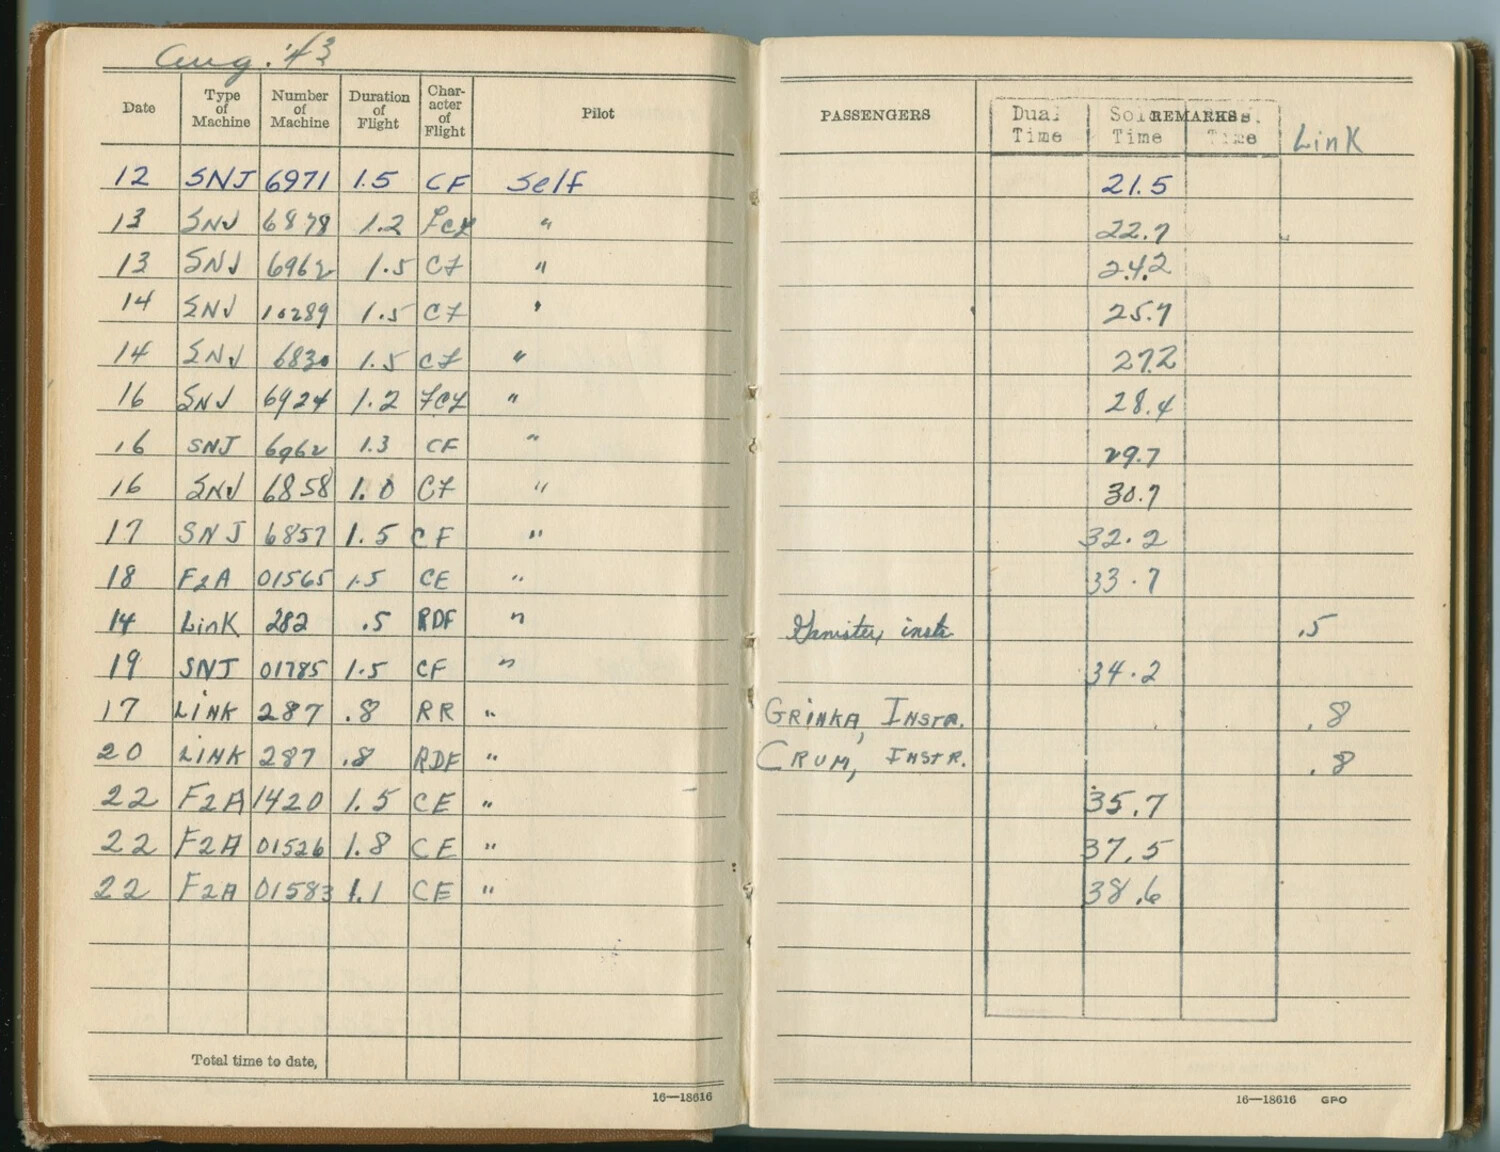 Aug. '43
Date Type of Machine Number of Machine Duration of Flight Char- acter of Flight Pilot PASSENGERS REMARKS Dual Time Solo Time Time Link
12 SNJ 6971 1.5 CF Self 21.5
13 SNJ 6878 1.2 FCF " 22.7
13 SNJ 6962 1.5 CF " 24.2
14 SNJ 10289 1.5 CF " 25.7
14 SNJ 6830 1.5 CF " 27.2
16 SNJ 6924 1.2 FCF " 28.4
16 SNJ 6962 1.3 CF " 29.7
16 SNJ 6858 1.0 CF " 30.7
17 SNJ 6857 1.5 CF " 32.2
18 F2A 01565 1.5 CE " 33.7
14 LinK 282 .5 RDF " instr .5
19 SNJ 01785 1.5 CF " 34.2
17 LINK 287 .8 RR " GRINKA, INSTR. .8
20 LINK 287 .8 RDF " CRUM, INSTR. .8
22 F2A 1420 1.5 CE " 35.7
22 F2A 01526 1.8 CE " 37.5
22 F2A 01583 1.1 CE " 38.6
Total time to date,
16—18616
16—18616 GPO